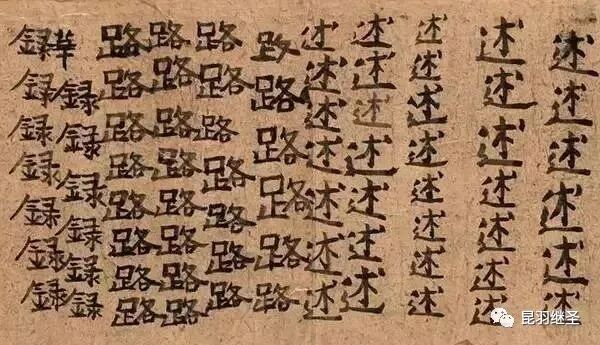 述述述述述述
述述述述述述述
述述述述述述述述
述述述述述述述
述述述述述述述
路路路路路路
路路路路路路路
路路路路路路路路
路路路路路路路路
華録録録録録録
録録録録録録録
昆羽继圣